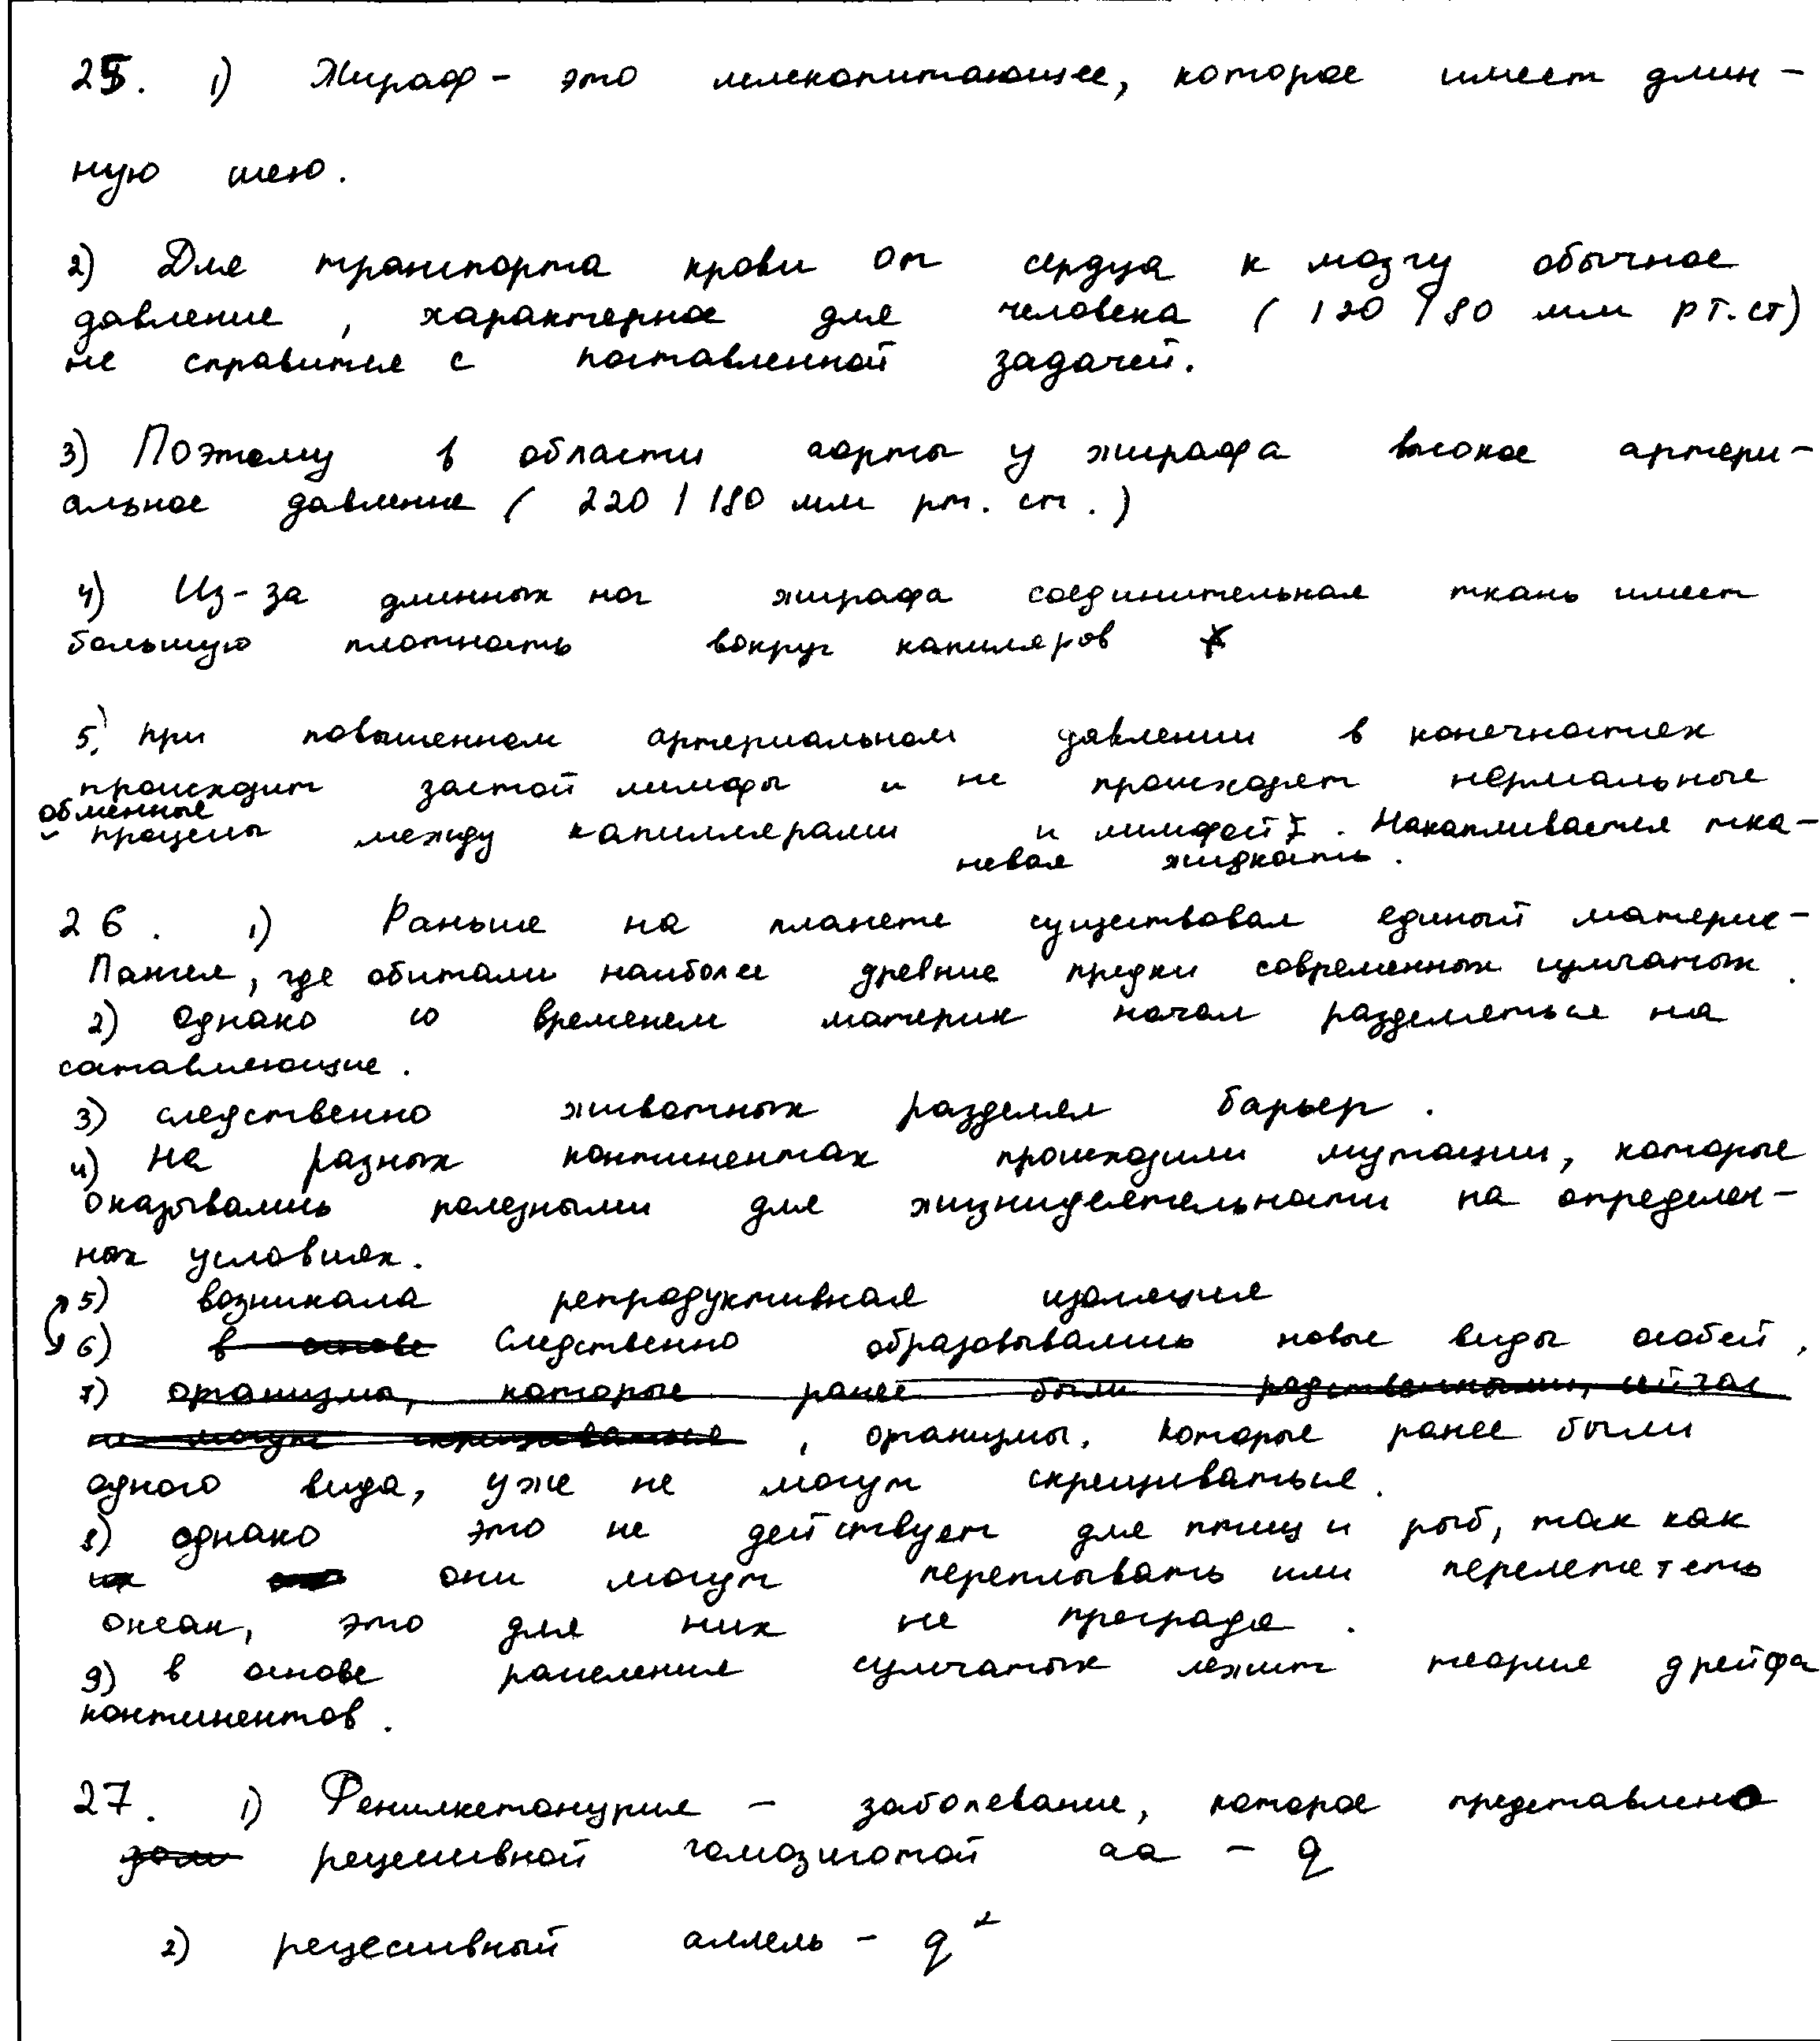 25. 1) Жираф - это млекопитающее, которое имеет длин-
ную шею.
2) Для транспорта крови от сердца к мозгу обычное
давление, характерное для человека (120/80 мм рт.ст)
не справится с поставленной задачей.
3) Поэтому в области аорты у жирафа высокое артери-
альное давление (220/180 мм рт. ст.)
4) Из-за длинных ног жирафа соединительная ткань имеет
большую плотность вокруг капиляров
5) при повышенном артериальном давлении в конечностях
происходит застой лимфы и не происходят нормальные
обменные
процессы между капиллярами и лимфой. Накапливается тка-
невая жидкость.
26. 1) Раньше на планете существовал единый материк-
Пангея, где обитали наиболее древние предки современных сумчатых.
2) Однако со временем материк начал разделяться на
составляющие.
3) следственно животных разделял барьер.
4) На разных континентах происходили мутации, которые
оказывались полезными для жизнидеятельности на определен-
ных условиях.
5) возникала репродуктивная изоляция
6) в основе Следственно образовывались новые виды особей.
7) организмы, которые ранее были родственными, сейчас
не могут скрещиваться, организмы, которые ранее были
одного вида, уже не могут скрещиваться.
8) однако это не действует для птиц и рыб, так как
они могут переплывать или перелететь
океан, это для них не преграда.
9) в основе расселения сумчатых лежит теория дрейфа
континентов.
27. 1) Фенилкетонурия - заболевание, которое представлено
рецессивной гомозиготой аа - q
2) рецессивный аллель - q²